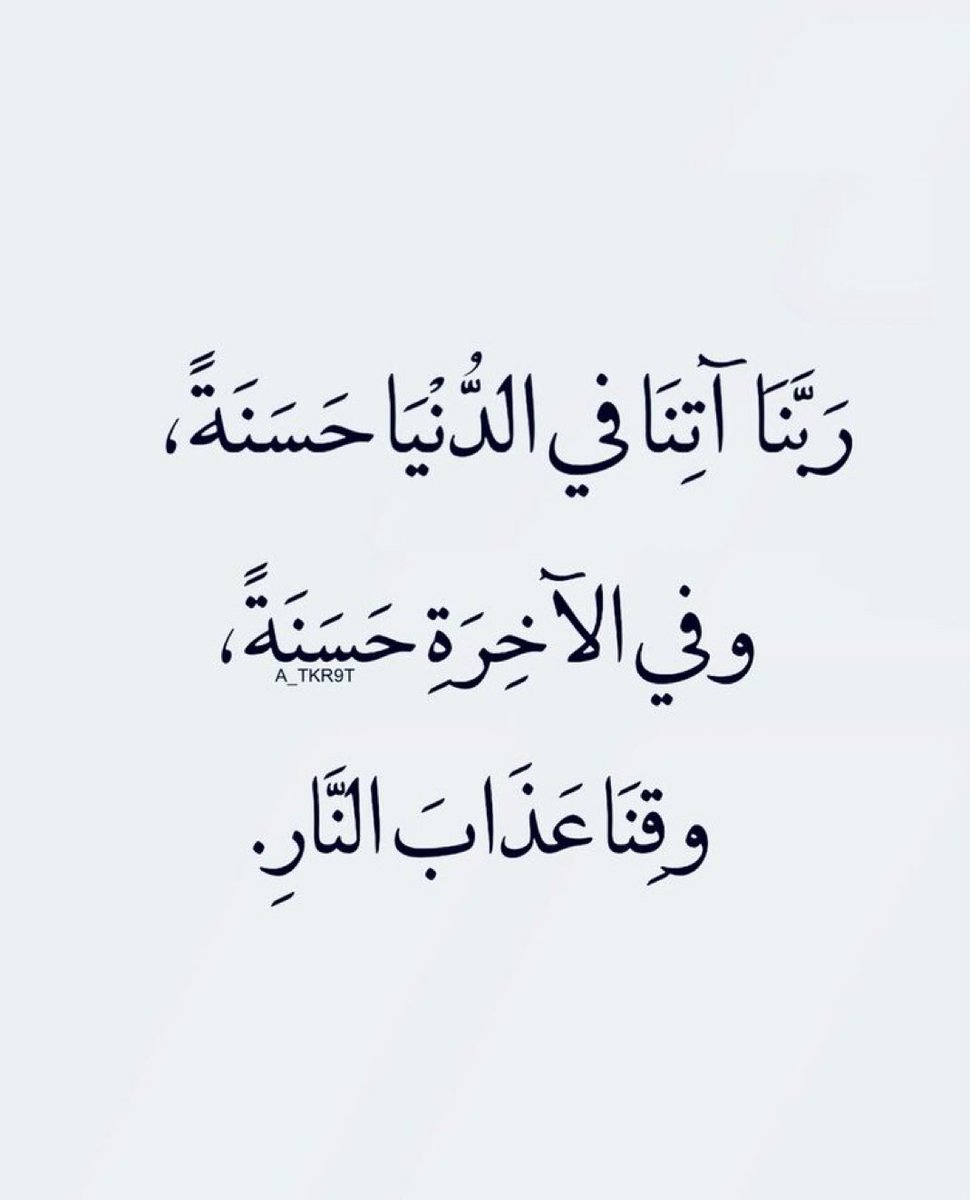 رَبَّنَا آتِنَا في الدُّنْيَا حَسَنَةً،
وفي الآخِرَةِ حَسَنَةً،
A_TKR9T
وقِنَا عَذَابَ النَّارِ.